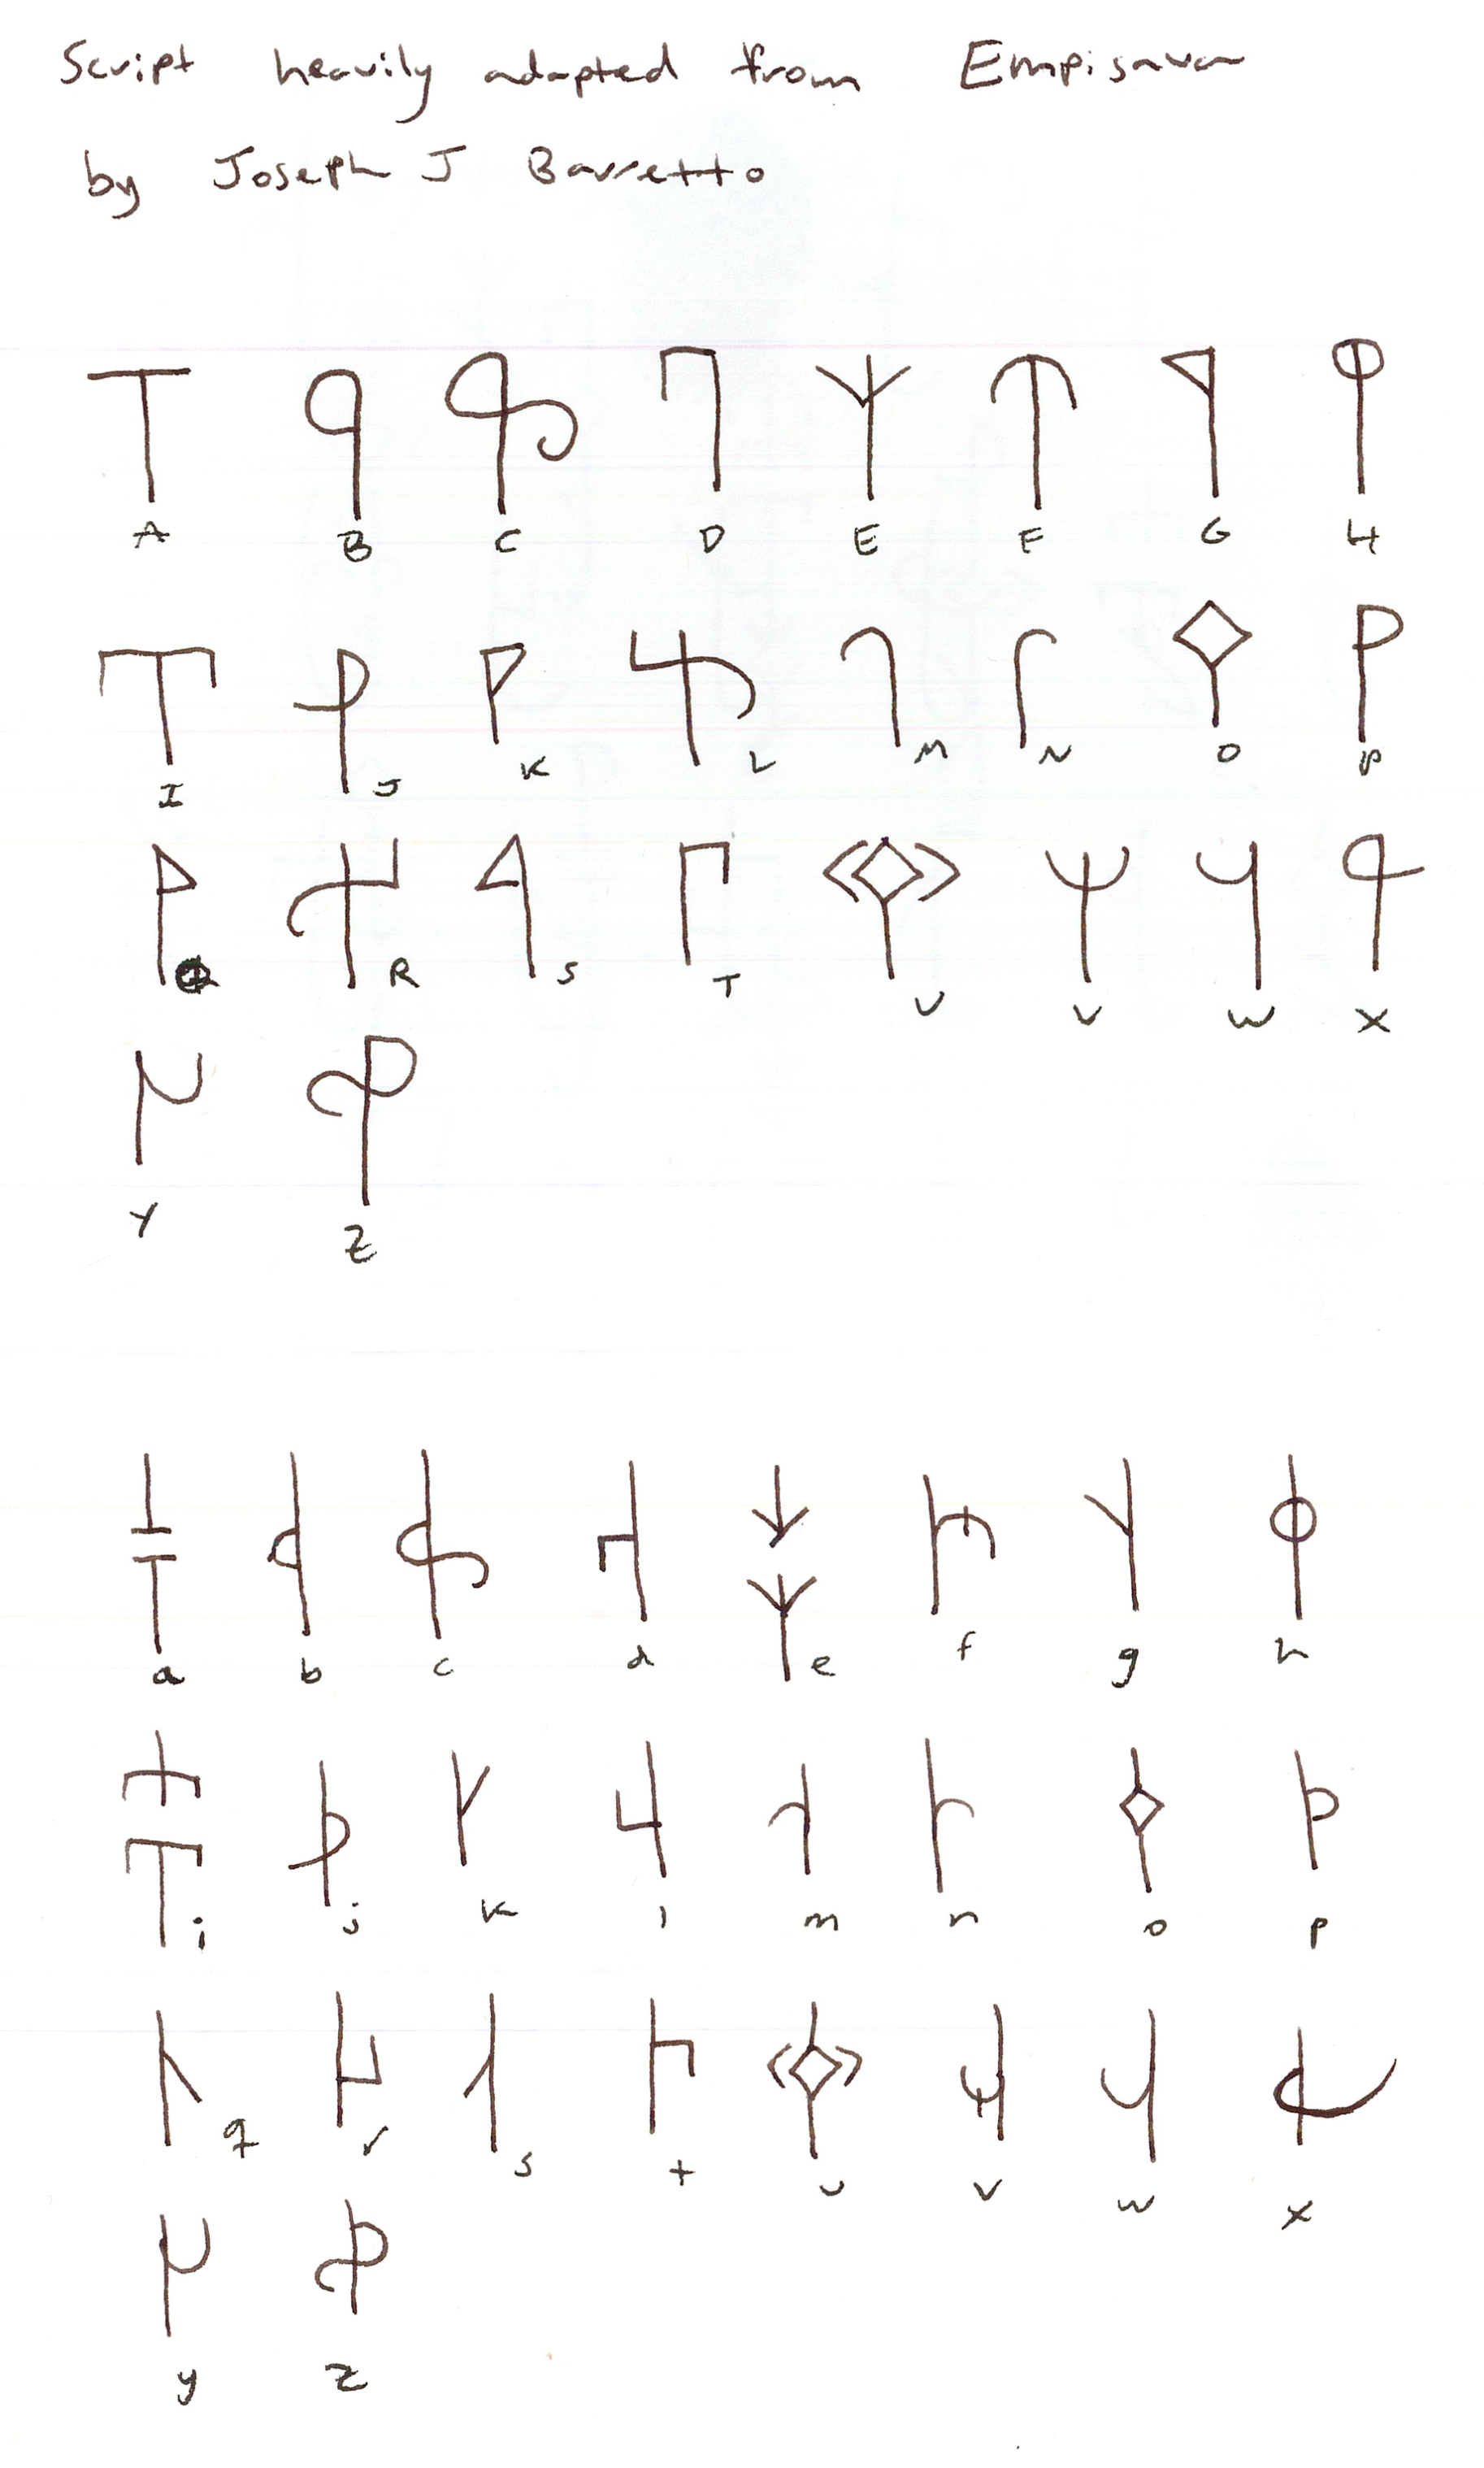 Script heavily adapted from Empisava
by Joseph J Barretto
A B C D E F G H
I J K L M N O P
Q R S T U V W X
Y Z
a b c d e f g h
i j k l m n o p
q r s t u v w x
y z